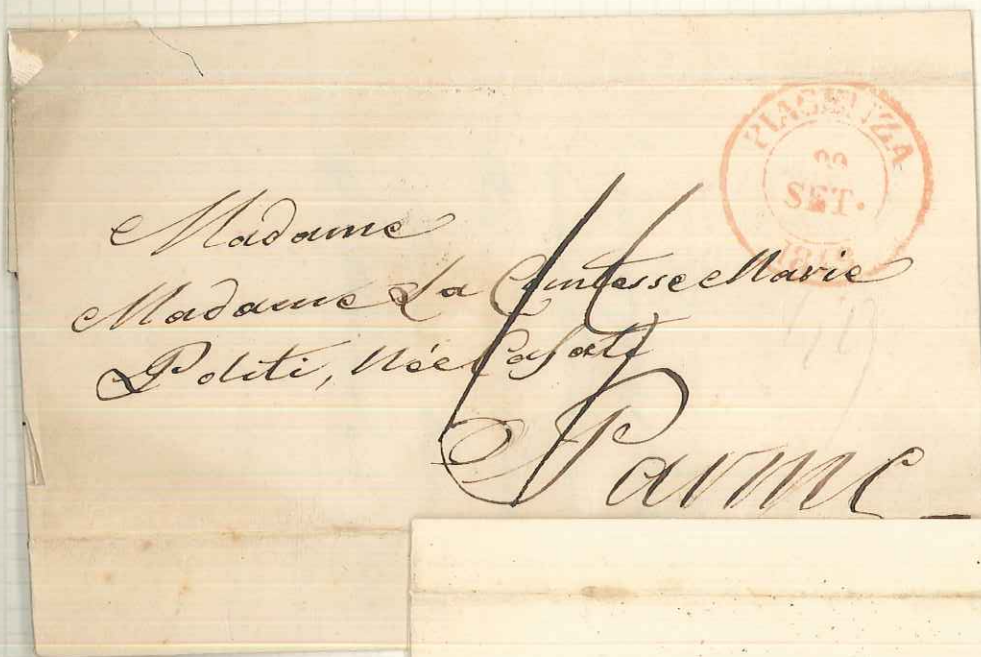 PIACENZA
SET.
Madame
Madame La Comtesse Marie
Politi, Née Casati
Parme